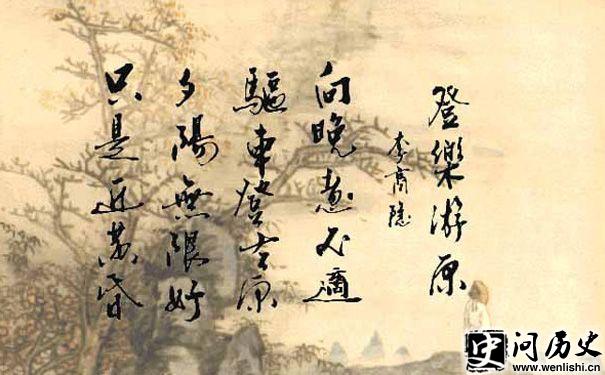 登樂游原
李商隱
向晚意不適
驅車登古原
夕陽無限好
只是近黃昏
史
问历史
www.wenlishi.cn